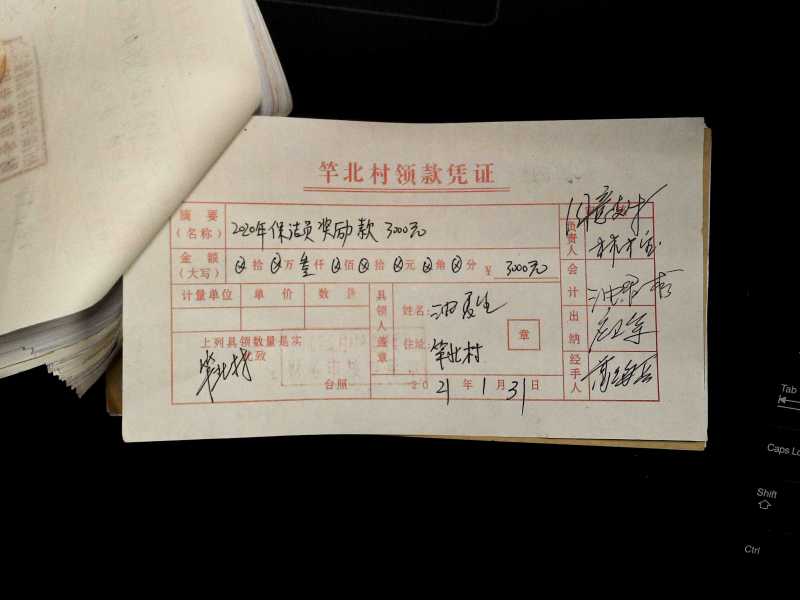 竿北村领款凭证
摘要
(名称)
2020年保洁员奖励款 3000元
金额
(大写)
⊗拾⊗万叁仟⊗佰⊗拾⊗元⊗角⊗分 ¥ 3000元
计量单位 单价 数量
具领人盖章
姓名:
住址: 竿北村
章
上列具领数量是实
此致
竿北村
台照
2021年1月31日
负责人
会计
出纳
经手人
Tab
Caps Lo
Shift
Ctrl